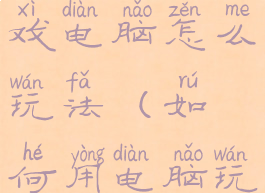 xì diàn nǎo zěn me
戏电脑怎么
wán fǎ rú
玩法（如
hé yòng diàn nǎo wán
何用电脑玩